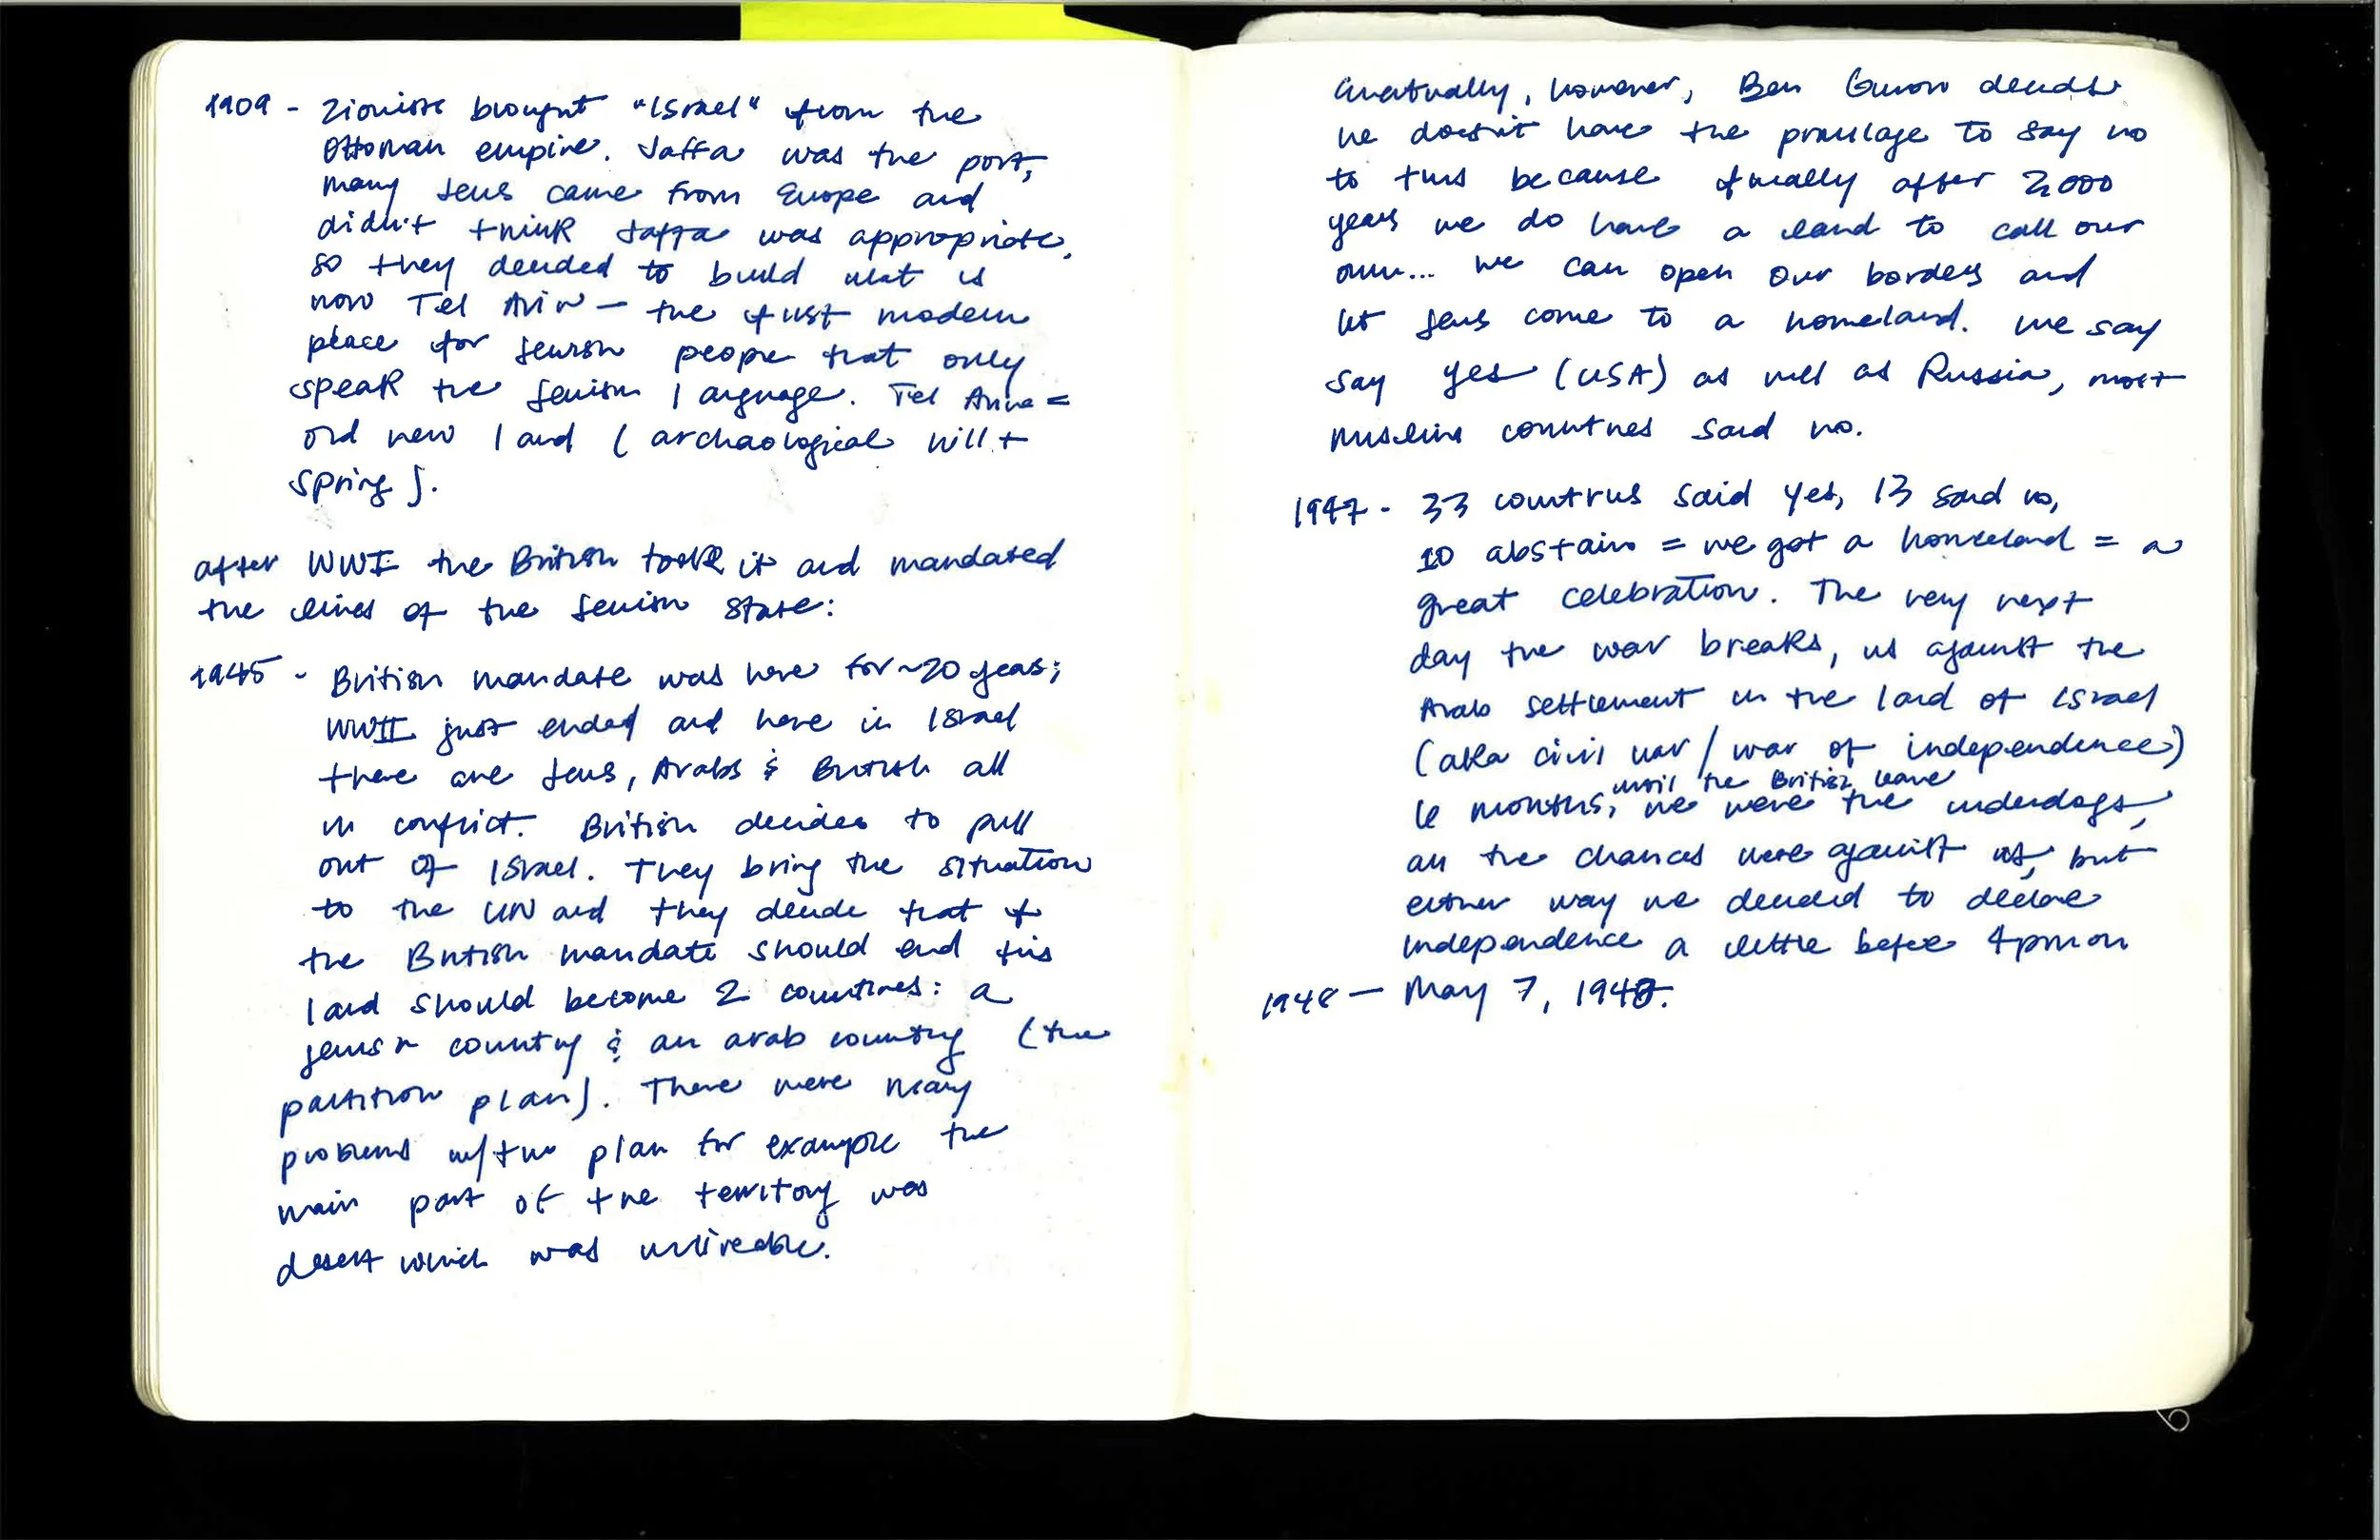 1909 - Zionists brought "Israel" from the
Ottoman empire. Jaffa was the port,
many Jews came from Europe and
didn't think Jaffa was appropriate,
so they decided to build what is
now Tel Aviv — the first modern
place for Jewish people that only
speak the Jewish language. Tel Aviv =
old new land (archaological hill +
spring).
after WWI the British took it and mandated
the lines of the Jewish State:
1945 - British mandate was here for ~20 years;
WWII just ended and here in Israel
there are Jews, Arabs & British all
in conflict. British decides to pull
out of Israel. They bring the situation
to the UN and they decide that if
the British mandate should end this
land should become 2 countries: a
jewish country & an arab country (the
partition plan). There were many
problems w/the plan for example the
main part of the territory was
desert which was unliveable.
Eventually, however, Ben Gurion decides
he doesn't have the privilage to say no
to this because finally after 2,000
years we do have a land to call our
own... we can open our borders and
let Jews come to a homeland. we say
say yes (USA) as well as Russia, most
muslim countries said no.
1947 - 33 countries said yes, 13 said no,
10 abstain = we got a homeland = a
great celebration. The very next
day the war breaks, us against the
Arab settlement in the land of Israel
(aka civil war / war of independence)
until the British leave
6 months, we were the underdogs,
all the chances were against us, but
either way we decided to declare
independence a little before 4pm on
1948 — May 7, 1948.